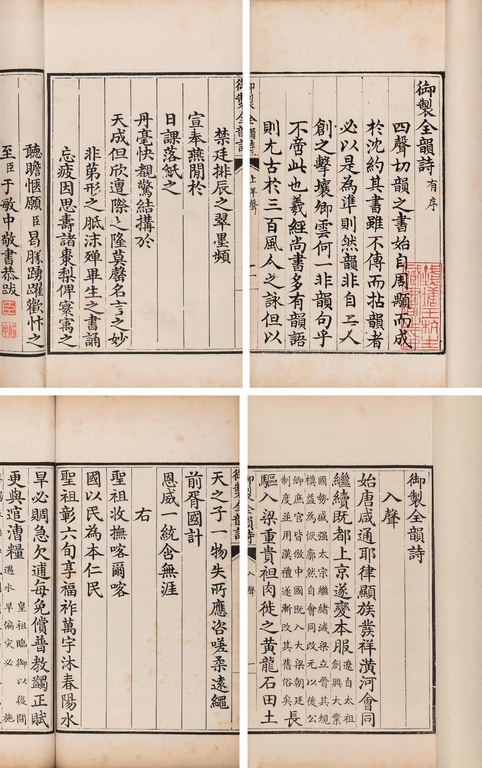 御製全韻詩 有序
四聲切韻之書始自周顒而成
於沈約其書雖不傳而拈韻者
必以是為準則然韻非自二人
創之擊壤卿雲何一非韻句乎
不啻此也羲經尚書多有韻語
則尤古於三百風人之詠但以
御製全韻詩 上平聲
禁廷排辰之翠墨頻
宣奉燕閒於
日課落紙之
丹毫快覩驚結搆於
天成但欣遭際之隆莫罄名言之妙
非弟形之胝沫殫畢生之書誦
忘疲因思壽諸棗梨俾寰寓之
聽瞻愜願臣曷勝踴躍歡忭之
至臣于敏中敬書恭跋
御製全韻詩
入聲
始唐咸通耶律顯族發祥潢河會同
繼續既都上京遂變本服
驅入梁重貴袒肉徙之黃龍石田土
御製全韻詩 入聲
天之子一物失所應咨嗟柔遠繩
前胥國計
恩威一統含無涯
右
聖祖收撫喀爾喀
國以民為本仁民
聖祖彰六旬享福祚萬宇沐春陽水
旱必賙急欠逋每免償普教蠲正賦
更與逭漕糧